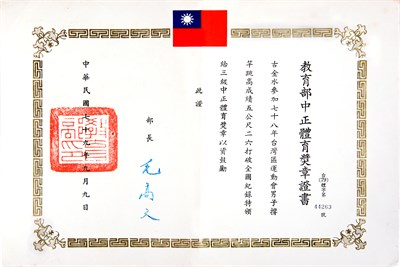 教育部中正體育獎章證書
台(79)體字第44263號
古金水參加七十八年台灣區運動會男子撐
竿跳高成績五公尺二六打破全國紀錄特頒
給三級中正體育獎章以資鼓勵
此證
部長
毛高文
中華民國七十九年九月九日